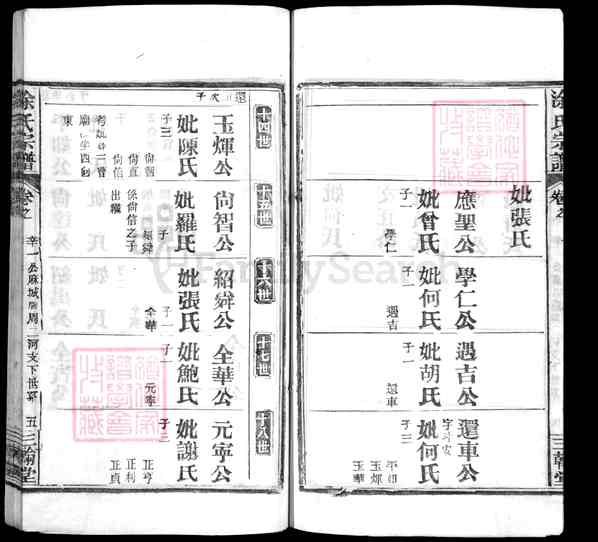 涂氏宗譜
妣張氏
應聖公
妣曾氏
子一
學仁
學仁公
妣何氏
子二
遇吉
遇吉公
妣胡氏
子一
還車
還車公
妣何氏
子三
玉煇
玉華
三翰堂
十四世
十五世
十六世
十七世
十八世
還車次子
玉煇公
妣陳氏
子三
尙智
尙直
尙伯
尙智公
妣羅氏
子一
紹舜
係尙信之子
出繼
紹舜公
妣張氏
子一
全華
全華公
妣鮑氏
子一
元寧
元寧公
妣謝氏
子三
正亨
正利
正貞
涂氏宗譜
辛一公麻城隋周二河支下世系
五
三翰堂
FamilySearch